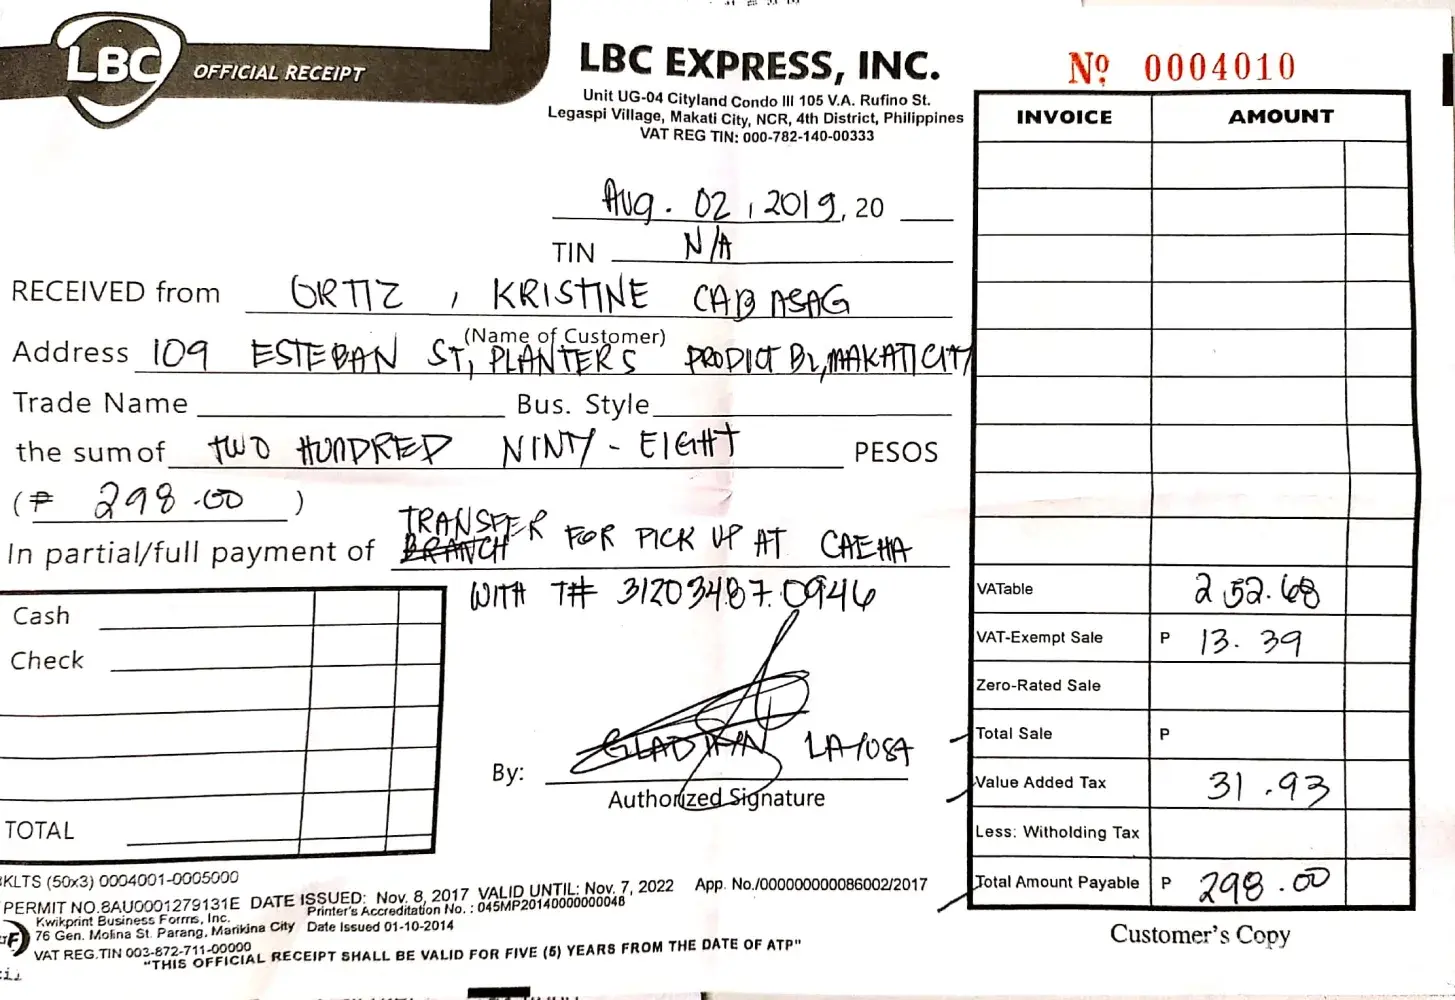 LBC OFFICIAL RECEIPT
LBC EXPRESS, INC.
Unit UG-04 Cityland Condo III 105 V.A. Rufino St.
Legaspi Village, Makati City, NCR, 4th District, Philippines
VAT REG TIN: 000-782-140-00333
Nº 0004010
AUG. 02, 2019, 20
TIN N/A
RECEIVED from ORTIZ, KRISTINE CABASAG
(Name of Customer)
Address 109 ESTEBAN ST, PLANTERS PRODICT BL, MAKATI CITY
Trade Name Bus. Style
the sum of TWO HUNDRED NINTY-EIGHT PESOS
(₱ 298.00)
TRANSFER
In partial/full payment of BRANCH FOR PICK UP AT
WITH T# 312034870946
Cash
Check
TOTAL
By: LAYOSA
Authorized Signature
INVOICE AMOUNT
VATable 252.68
VAT-Exempt Sale P 13.39
Zero-Rated Sale
Total Sale P
Value Added Tax 31.93
Less: Witholding Tax
Total Amount Payable P 298.00
Customer's Copy
BKLTS (50x3) 0004001-0005000
PERMIT NO.8AU0001279131E DATE ISSUED: Nov. 8, 2017 VALID UNTIL: Nov. 7, 2022 App. No./000000000086002/2017
Kwikprint Business Forms, Inc. Printer's Accreditation No. : 045MP20140000000048
76 Gen. Molina St. Parang, Marikina City Date Issued 01-10-2014
VAT REG.TIN 003-872-711-00000
"THIS OFFICIAL RECEIPT SHALL BE VALID FOR FIVE (5) YEARS FROM THE DATE OF ATP"